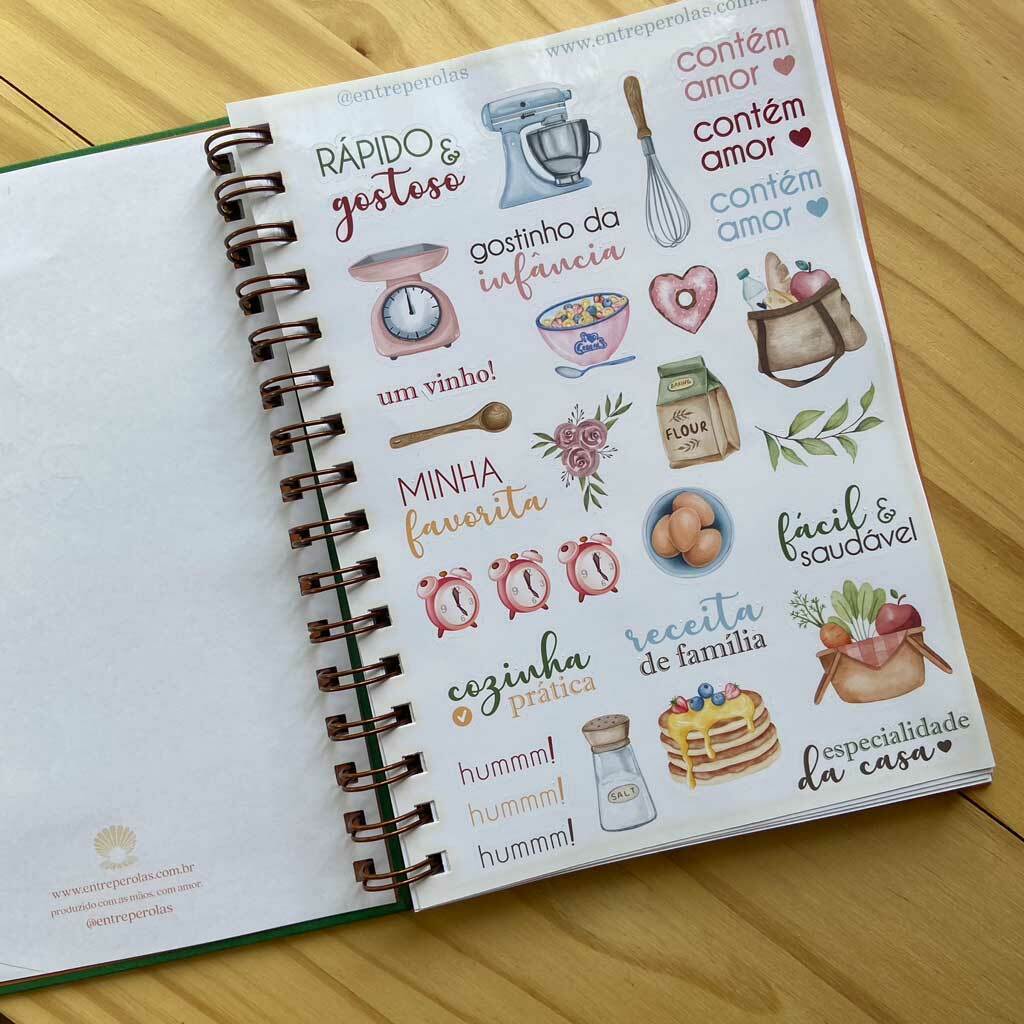 @entreperolas
www.entreperolas.com.br
RÁPIDO &
gostoso
contém
amor
contém
amor
contém
amor
gostinho da
infância
um vinho!
BAKING
FLOUR
MINHA
favorita
fácil &
saudável
9 3
6
9 3
6
9 3
6
receita
de família
cozinha
prática
hummm!
hummm!
hummm!
SALT
especialidade
da casa
www.entreperolas.com.br
produzido com as mãos, com amor.
@entreperolas